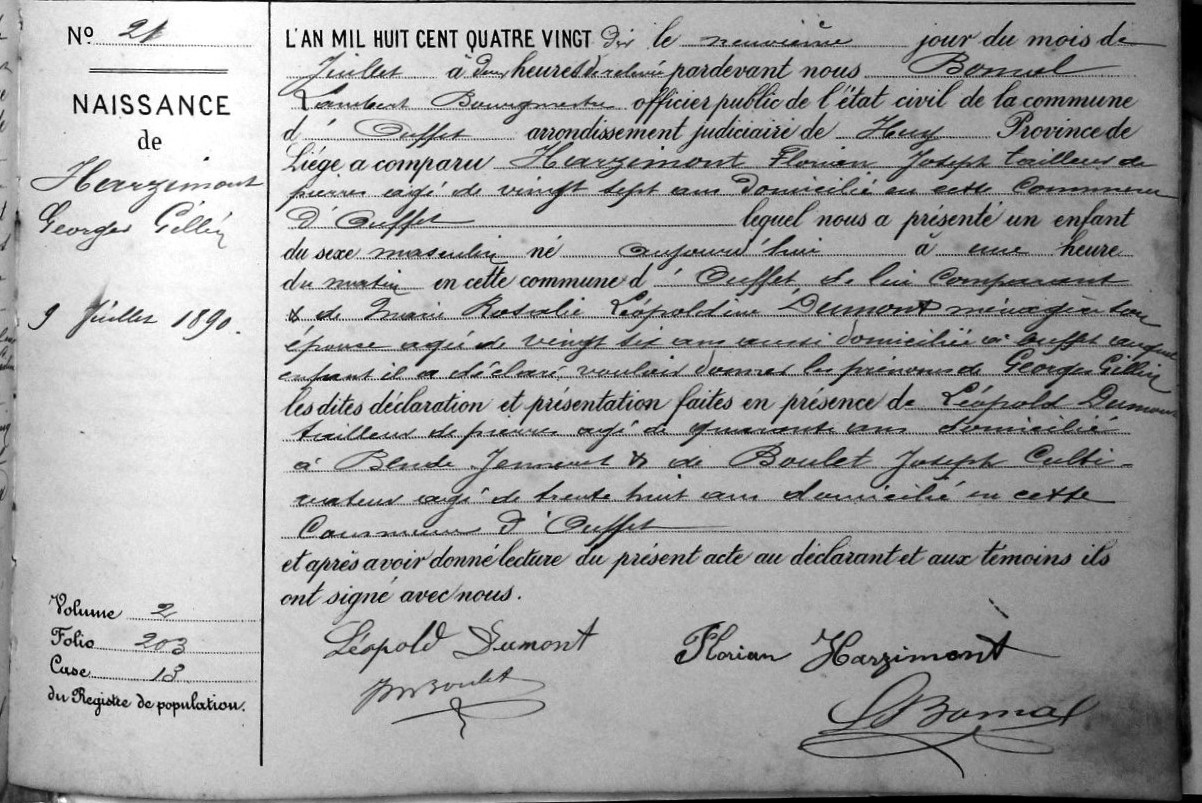 Nº 21
NAISSANCE
de
Harzimont
Georges Gillin
9 Juillet 1890.
Volume 2
Folio 203
Case 13
du Registre de population.
L'AN MIL HUIT CENT QUATRE VINGT dix le neuvième jour du mois de
Juillet à deux heures de relevée pardevant nous Bomal
Lambert Bourgmestre officier public de l'état civil de la commune
d' Ouffet arrondissement judiciaire de Huy Province de
Liége a comparu Harzimont Florian Joseph tailleur de
pierres agé de vingt sept ans domicilié en cette Commune
d'Ouffet lequel nous a présenté un enfant
du sexe masculin né aujourd'hui à une heure
du matin en cette commune d' Ouffet de lui comparant
& de Marie Rosalie Léopoldine Dumont ménagère son
épouse agée de vingt six ans aussi domiciliée à Ouffet auquel
enfant il a déclaré vouloir donner les prénoms de Georges Gillin
les dites déclaration et présentation faites en présence de Léopold Dumont
tailleur de pierres agé de quarante ans domicilié
à Bende Jenneret & de Boulet Joseph Culti-
vateur agé de trente huit ans domicilié en cette
Commune d'Ouffet
et après avoir donné lecture du présent acte au déclarant et aux témoins ils
ont signé avec nous.
Léopold Dumont Florian Harzimont
Boulet
L Bomal